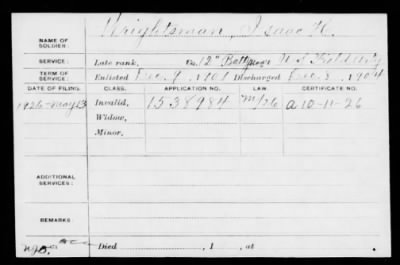 Wrightsman, Isaac H.
NAME OF
SOLDIER:
SERVICE:
Late rank, Co. 12" Batty U S Field Arty
TERM OF
SERVICE:
Enlisted Dec. 9, 1901 Discharged Dec. 8, 1904
DATE OF FILING. CLASS. APPLICATION NO. LAW. CERTIFICATE NO.
1926-May 13 Invalid, 1538984 a 10-11-26
Widow,
Minor,
ADDITIONAL
SERVICES:
REMARKS:
Died , 1 , at